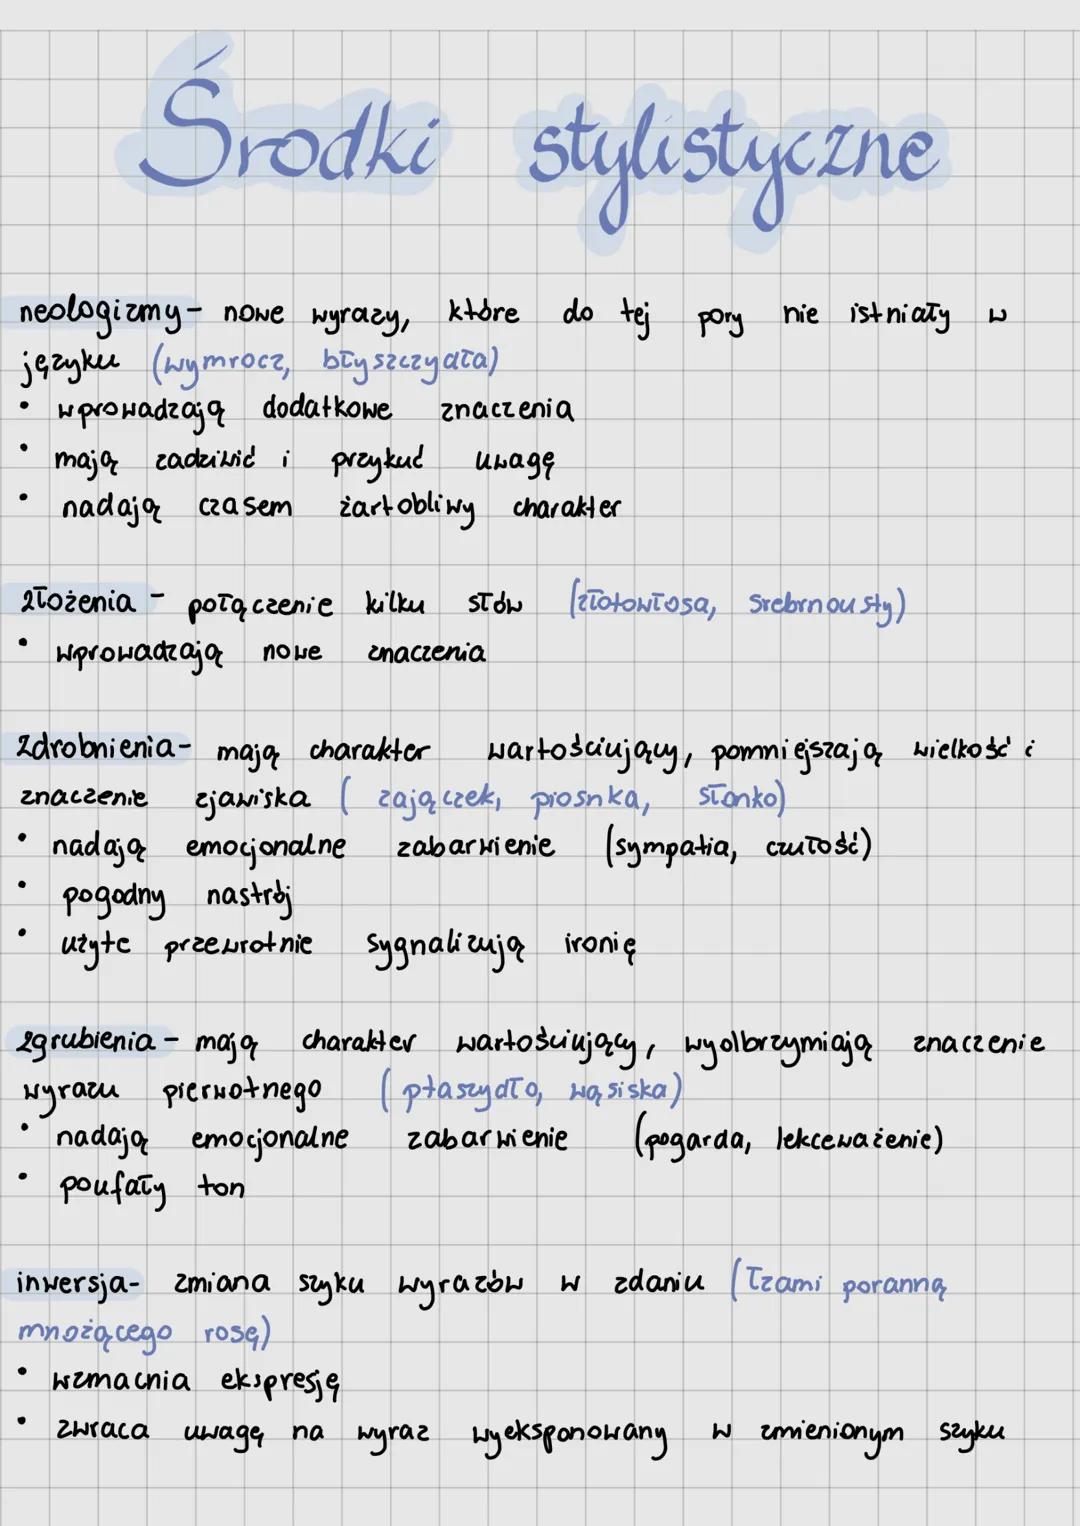 Środki stylistyczne
neologizmy - nowe wyrazy, które do tej pory nie istniały w
języku (wymrocz, błyszczydła)
• wprowadzają dodatkowe znaczenia
• mają zadziwić i przykuć uwagę
• nadają czasem żartobliwy charakter
złożenia - połączenie kilku słów (złotowłosa, srebrnousty)
• wprowadzają nowe znaczenia
zdrobnienia - mają charakter wartościujący, pomniejszają wielkość i
znaczenie zjawiska (zajączek, piosnka, słonko)
• nadają emocjonalne zabarwienie (sympatia, czułość)
• pogodny nastrój
• użyte przewrotnie sygnalizują ironię
zgrubienia - mają charakter wartościujący, wyolbrzymiają znaczenie
wyrazu pierwotnego (ptaszydło, wąsiska)
• nadają emocjonalne zabarwienie (pogarda, lekceważenie)
• poufały ton
inwersja - zmiana szyku wyrazów w zdaniu (łzami poranną
mnożącego rosę)
• wzmacnia ekspresję
• zwraca uwagę na wyraz wyeksponowany w zmienionym szyku